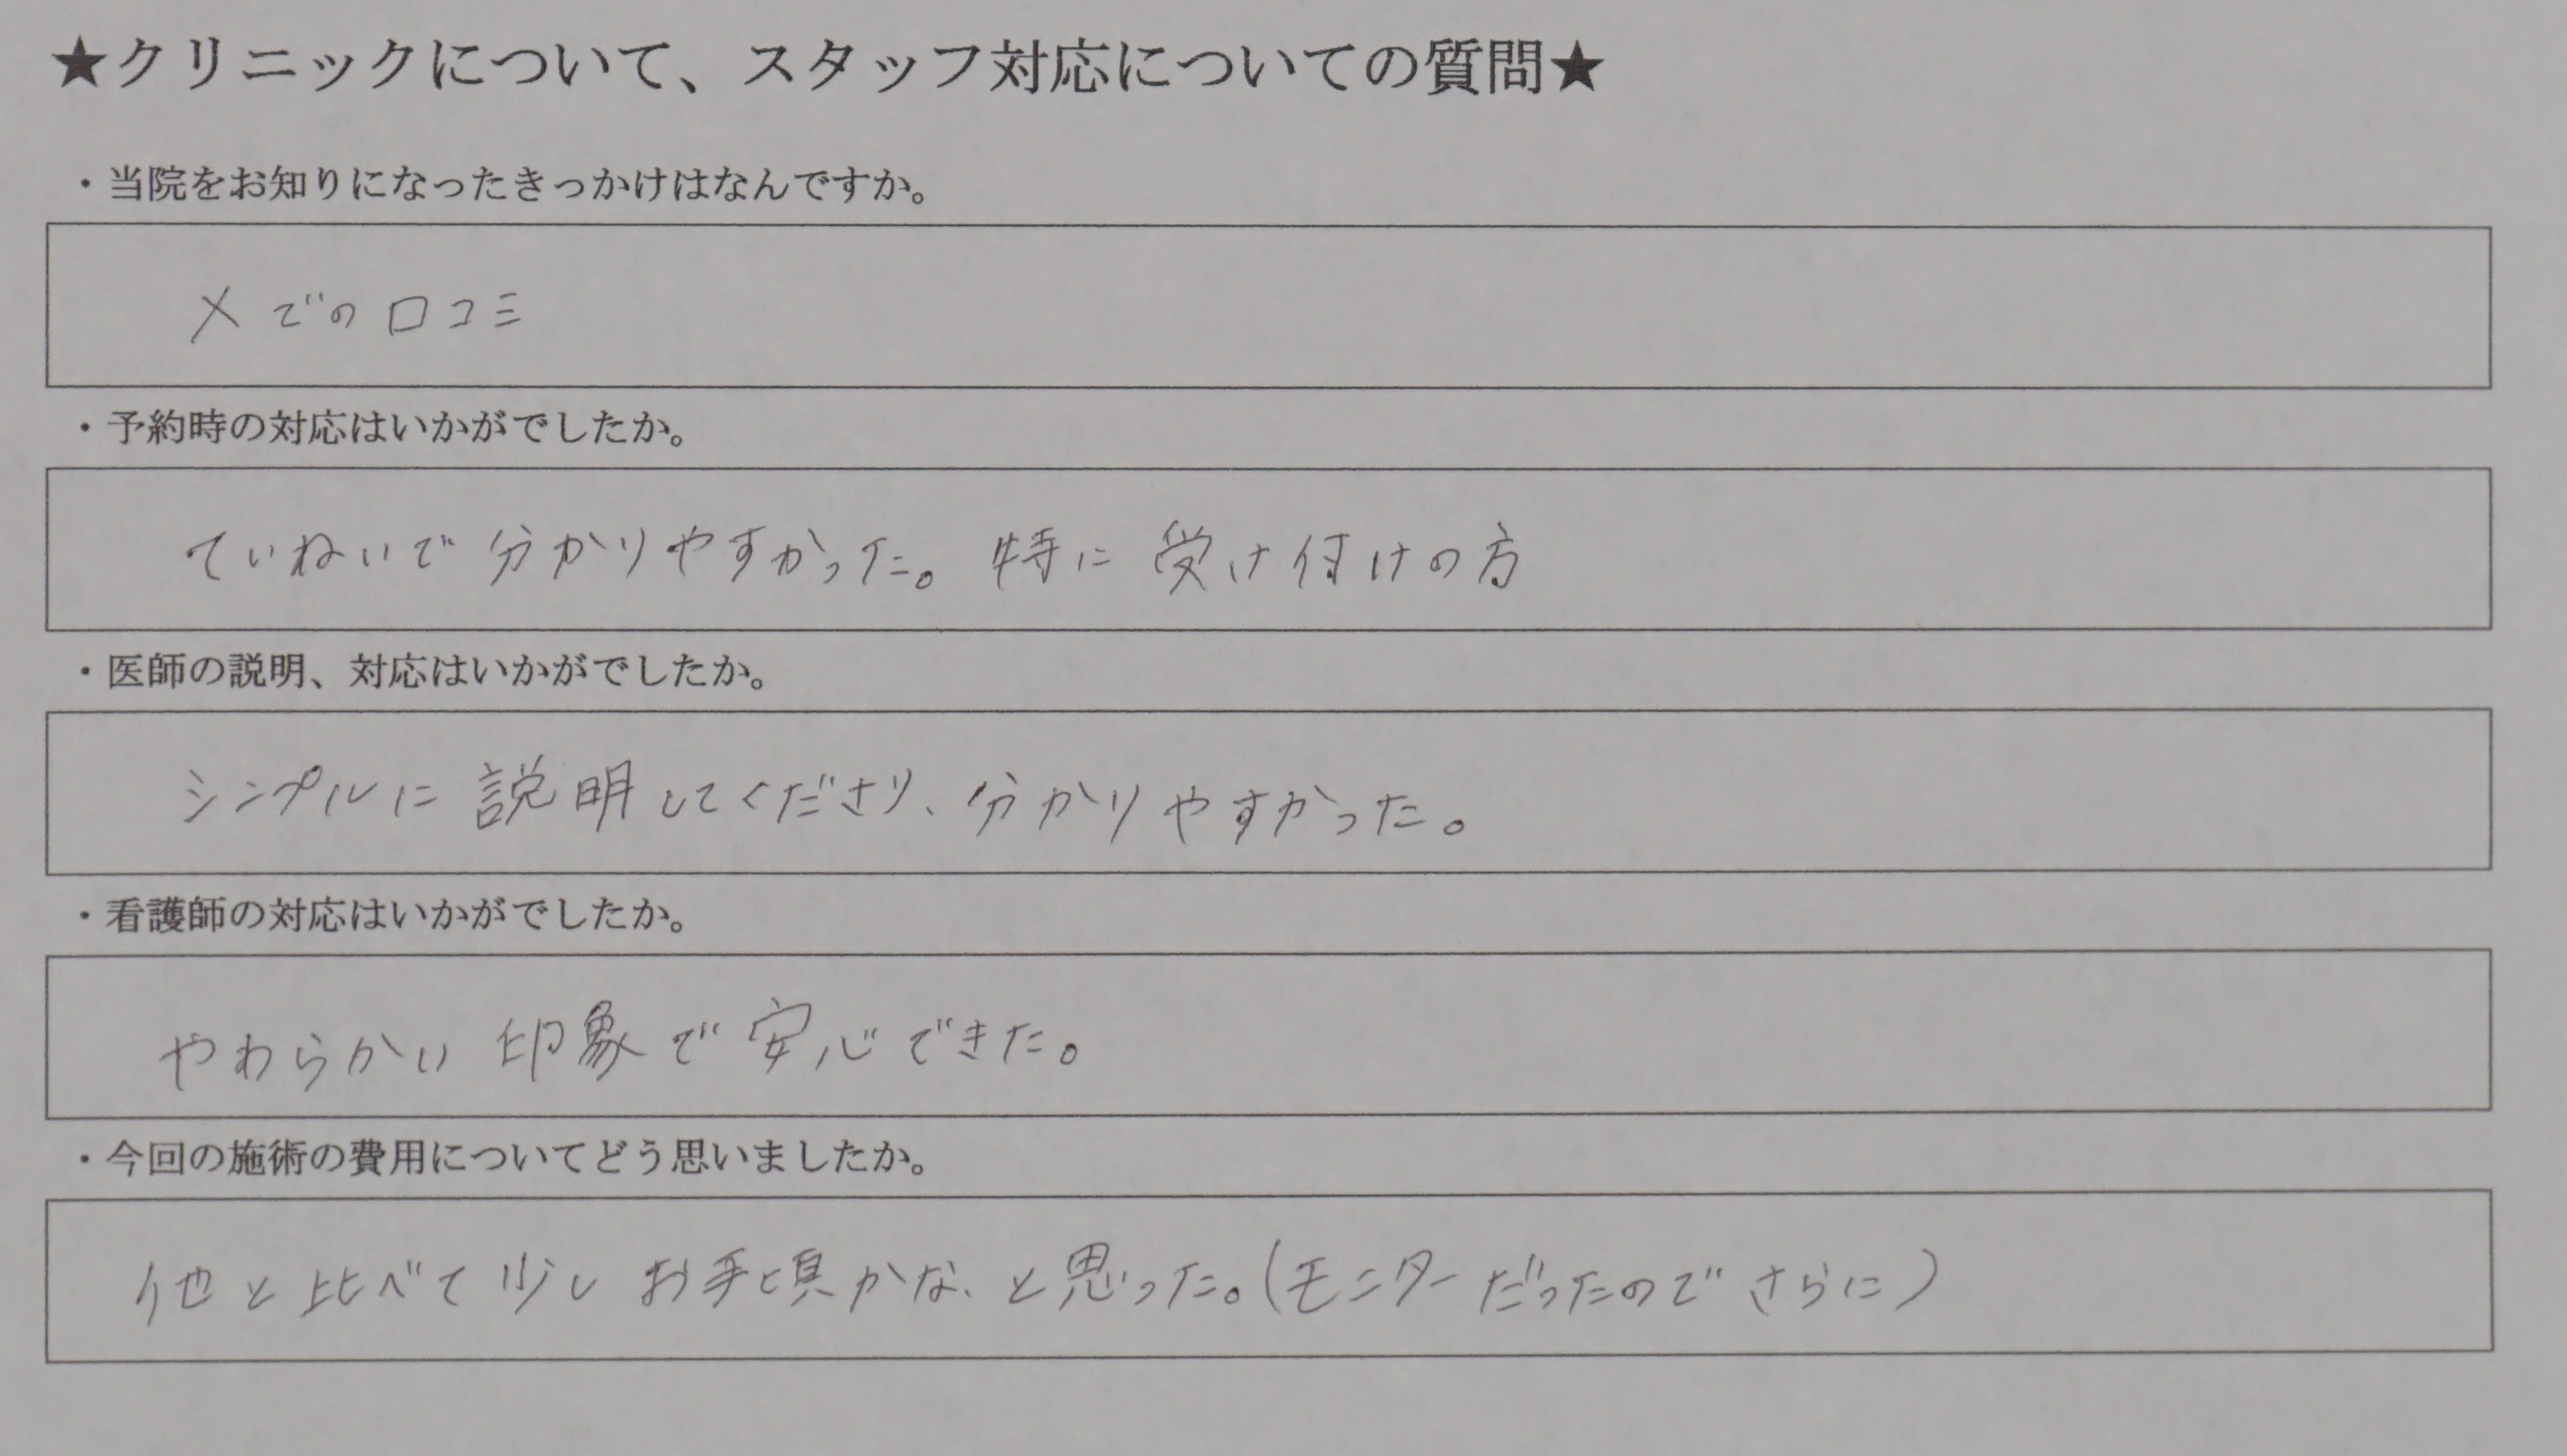 ★クリニックについて、スタッフ対応についての質問★
・当院をお知りになったきっかけはなんですか。
Xでの口コミ
・予約時の対応はいかがでしたか。
ていねいで分かりやすかった。特に受け付けの方
・医師の説明、対応はいかがでしたか。
シンプルに説明してくださり、分かりやすかった。
・看護師の対応はいかがでしたか。
やわらかい印象で安心できた。
・今回の施術の費用についてどう思いましたか。
他と比べて少しお手頃かな、と思った。(モニターだったのでさらに)